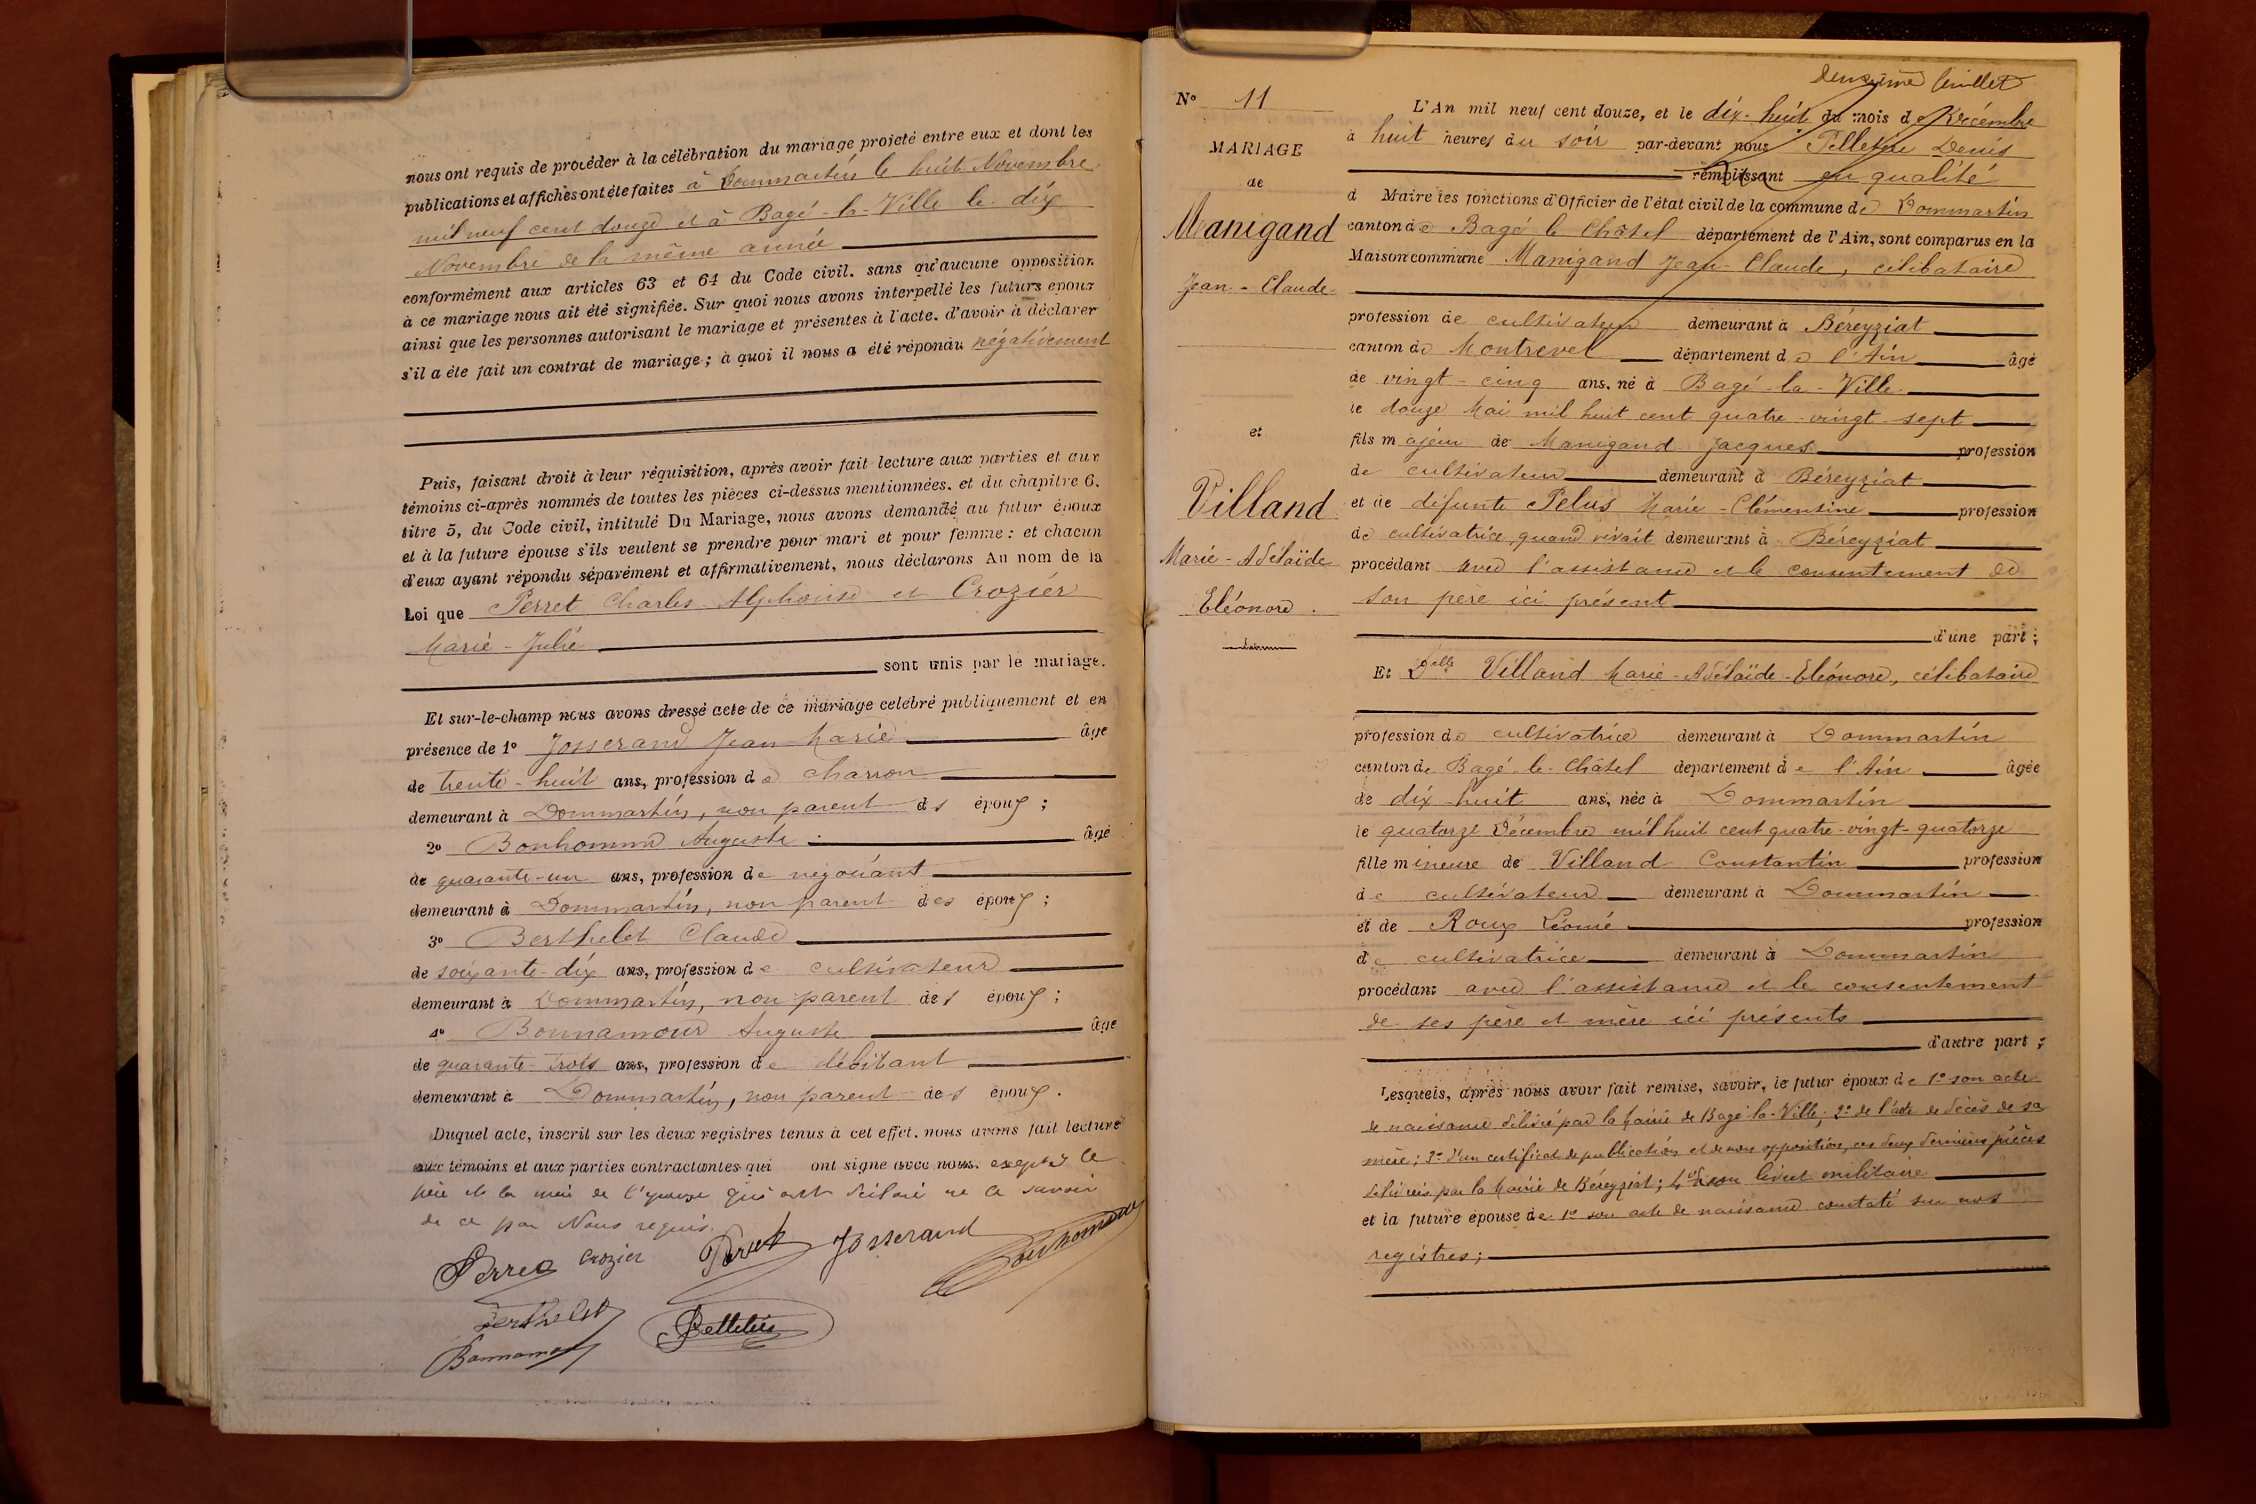 nous ont requis de procéder à la célébration du mariage projeté entre eux et dont les
publications et affiches ont été faites à Dommartin le huit Novembre
mil neuf cent douze et à Bagé-la-Ville le dix
Novembre de la même année
conformément aux articles 63 et 64 du Code civil, sans qu'aucune opposition
à ce mariage nous ait été signifiée. Sur quoi nous avons interpellé les futurs époux
ainsi que les personnes autorisant le mariage et présentes à l'acte, d'avoir à déclarer
s'il a été fait un contrat de mariage ; à quoi il nous a été répondu négativement
Puis, faisant droit à leur réquisition, après avoir fait lecture aux parties et aux
témoins ci-après nommés de toutes les pièces ci-dessus mentionnées, et du chapitre 6,
titre 5, du Code civil, intitulé Du Mariage, nous avons demandé au futur époux
et à la future épouse s'ils veulent se prendre pour mari et pour femme : et chacun
d'eux ayant répondu séparément et affirmativement, nous déclarons Au nom de la
Loi que Perret Charles-Alphonse et Crozier
Marie-Julie
sont unis par le mariage.
Et sur-le-champ nous avons dressé acte de ce mariage célébré publiquement et en
présence de 1º Josserand Jean-Marie âgé
de trente-huit ans, profession de charron
demeurant à Dommartin, non parent des époux ;
2º Bonhomme Auguste âgé
de quarante-un ans, profession de négociant
demeurant à Dommartin, non parent des époux ;
3º Berthelet Claude
de soixante-dix ans, profession de cultivateur
demeurant à Dommartin, non parent des époux ;
4º Bonnamour Auguste âgé
de quarante-trois ans, profession de débitant
demeurant à Dommartin, non parent des époux.
Duquel acte, inscrit sur les deux registres tenus à cet effet, nous avons fait lecture
aux témoins et aux parties contractantes qui ont signé avec nous, excepté le
père et la mère de l'épouse qui ont déclaré ne le savoir
de ce par Nous requis.
Perret Crozier Perret Josserand Bonhomme
Berthelet
Bonnamour
Nº 11
MARIAGE
de
Manigand
Jean-Claude
et
Villand
Marie-Adélaïde
Eléonore.
deuxième feuillet
L'An mil neuf cent douze, et le dix-huit du mois de Décembre
à huit heures du soir par-devant nous Denis
remplissant en qualité
d Maire les fonctions d'Officier de l'état civil de la commune de Dommartin
canton de Bagé le Châtel département de l'Ain, sont comparus en la
Maison commune Manigand Jean-Claude, célibataire
profession de cultivateur demeurant à Béreyziat
canton de Montrevel département de l'Ain âgé
de vingt-cinq ans, né à Bagé-la-Ville
le douze Mai mil huit cent quatre-vingt-sept
fils majeur de Manigand Jacques profession
de cultivateur demeurant à Béreyziat
et de défunte Pelus Marie-Clémentine profession
de cultivatrice, quand vivait demeurant à Béreyziat
procédant avec l'assistance et le consentement de
son père ici présent
d'une part ;
Et Dlle Villand Marie-Adélaïde-Eléonore, célibataire
profession de cultivatrice demeurant à Dommartin
canton de Bagé-le-Châtel département de l'Ain âgée
de dix-huit ans, née à Dommartin
le quatorze Décembre mil huit cent quatre-vingt-quatorze
fille mineure de Villand Constantin profession
de cultivateur demeurant à Dommartin
et de Roux Léonie profession
de cultivatrice demeurant à Dommartin
procédant avec l'assistance et le consentement
de ses père et mère ici présents
d'autre part ;
Lesquels, après nous avoir fait remise, savoir, le futur époux de 1º son acte
de naissance délivré par la Mairie de Bagé-la-Ville ; 2º de l'acte de décès de sa
mère ; 3º d'un certificat de publication et de non opposition, ces deux dernières pièces
délivrées par la Mairie de Béreyziat ; 4º de son livret militaire
et la future épouse de 1º son acte de naissance constaté sur nos
registres ;